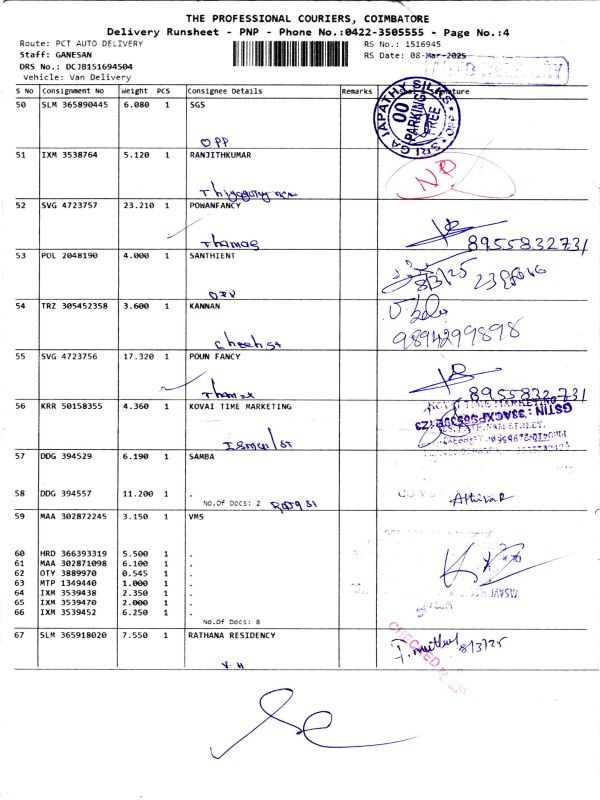 THE PROFESSIONAL COURIERS, COIMBATORE
Delivery Runsheet - PNP - Phone No.:0422-3505555 - Page No.:4
Route: PCT AUTO DELIVERY RS No.: 1516945
Staff: GANESAN RS Date: 08-Mar-2025
DRS No.: DCJB151694504
Vehicle: Van Delivery
S No Consignment No Weight PCS Consignee Details Remarks Signature
50 SLM 365890445 6.080 1 SGS
SRI GAJAPATHY SILKS
PARKING FREE
OPP
51 IXM 3538764 5.120 1 RANJITHKUMAR
ND
52 SVG 4723757 23.210 1 POWANFANCY
Thamas 8955832731
53 POL 2048190 4.000 1 SANTHIENT
8/3/25
54 TRZ 305452358 3.600 1 KANNAN
9894299898
55 SVG 4723756 17.320 1 POUN FANCY
8955832731
56 KRR 50158355 4.360 1 KOVAI TIME MARKETING
57 DDG 394529 6.190 1 SAMBA
58 DDG 394557 11.200 1 .
No.Of Docs: 2
59 MAA 302872245 3.150 1 VMS
60 HRD 366393319 5.500 1 .
61 MAA 302871098 6.100 1 .
62 OTY 3889970 0.545 1 .
63 MTP 1349440 1.000 1 .
64 IXM 3539438 2.350 1 .
65 IXM 3539470 2.000 1 .
66 IXM 3539452 6.250 1 .
No.Of Docs: 8
67 SLM 365918020 7.550 1 RATHANA RESIDENCY
8/3/25